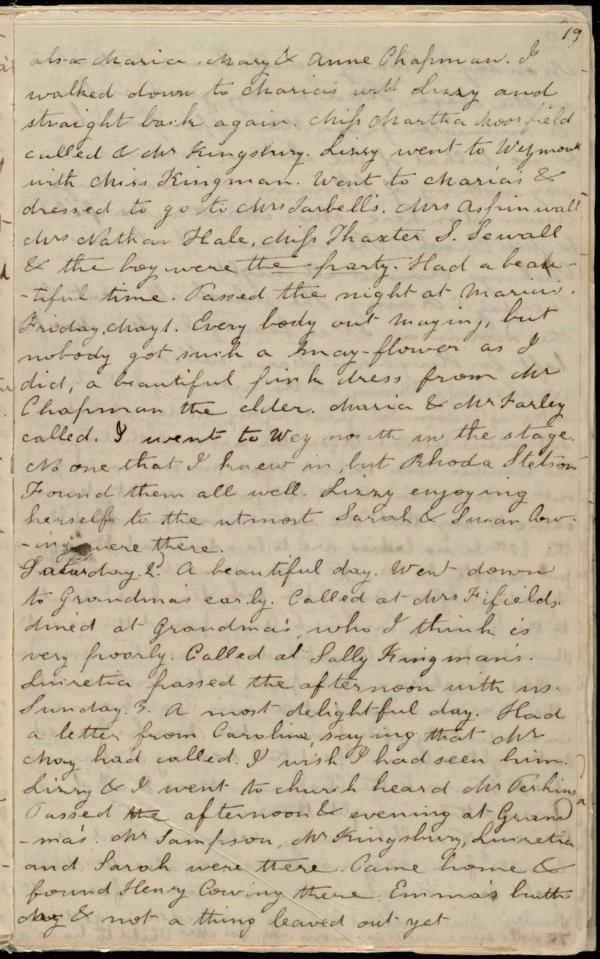 19
also Maria, Mary & Anne Chapman. I
walked down to Maria's with Lizzy and
straight back again. Miss Martha Moorfield
called & Mr Kingsbury. Lizzy went to Weymouth
with Miss Kingman. Went to Maria's &
dressed to go to Mrs Tarbell's. Mrs Aspinwall
Mrs Nathan Hale, Miss Thaxter S. Sewall
& the boy were the party. Had a beau-
-tiful time. Passed the night at Maria's.
Friday, May 1. Every body out Maying, but
nobody got such a may-flower as I
did, a beautiful pink dress from Mr
Chapman the elder. Maria & Mr Farley
called. I went to Weymouth in the stage.
No one that I knew in, but Rhoda Stetson
Found them all well. Lizzy enjoying
herself to the utmost. Sarah & Susan Cow-
-ing were there.
Saturday. 2. A beautiful day. Went down
to Grandma's early. Called at Mrs Fifields.
dined at Grandma's, who I think is
very poorly. Called at Sally Kingman's.
Lucretia passed the afternoon with us.
Sunday. 3. A most delightful day. Had
a letter from Caroline, saying that Mr
May had called. I wish I had seen him.
Lizzy & I went to church heard Mr Perkins
Passed the afternoon & evening at Grand
-ma's. Mr Sampson, Mr Kingsbury, Lucretia
and Sarah were there. Came home &
found Henry Cowing there. Emma's birth
day & not a thing leaved out yet